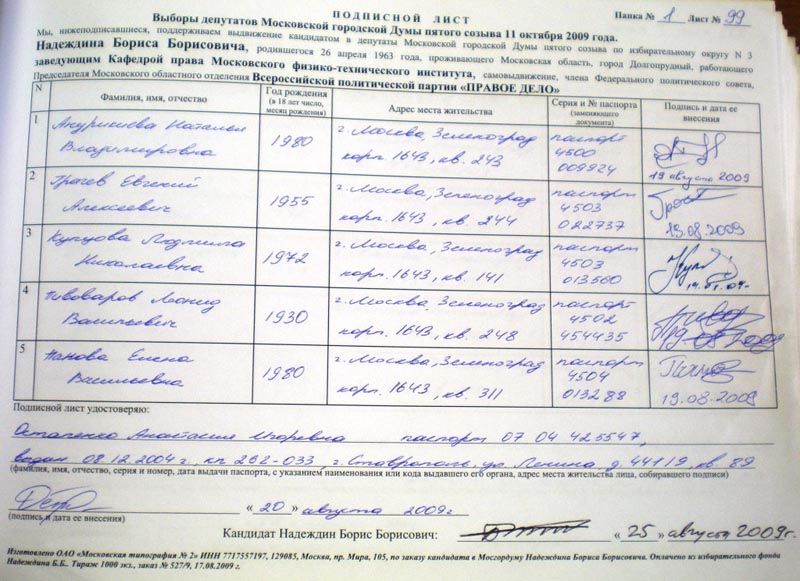 ПОДПИСНОЙ ЛИСТ Папка № 1 Лист № 99
Выборы депутатов Московской городской Думы пятого созыва 11 октября 2009 года.
Мы, нижеподписавшиеся, поддерживаем выдвижение кандидатом в депутаты Московской городской Думы пятого созыва по избирательному округу N 3
Надеждина Бориса Борисовича, родившегося 26 апреля 1963 года, проживающего Московская область, город Долгопрудный, работающего
заведующим Кафедрой права Московского физико-технического института, самовыдвижение, члена Федерального политического совета,
Председателя Московского областного отделения Всероссийской политической партии «ПРАВОЕ ДЕЛО»
N Фамилия, имя, отчество Год рождения (в 18 лет число, месяц рождения) Адрес места жительства Серия и № паспорта (заменяющего документа) Подпись и дата ее внесения
1 Наталья Владимировна 1980 г. Москва, Зеленоград корп. 1643, кв. 243 паспорт 4500 009924 19 августа 2009
2 Грачев Евгений Алексеевич 1955 г. Москва, Зеленоград корп. 1643, кв. 244 паспорт 4503 022737 19.08.2009
3 Купцова Людмила Николаевна 1972 г. Москва, Зеленоград корп. 1643, кв. 141 паспорт 4503 013560
4 Пивоваров Леонид Васильевич 1930 г. Москва, Зеленоград корп. 1643, кв. 248 паспорт 4502 454435
5 Панова Елена Васильевна 1980 г. Москва, Зеленоград корп. 1643, кв. 311 паспорт 4504 013288 19.08.2009
Подписной лист удостоверяю:
Остапенко Анастасия Игоревна паспорт 07 04 425547,
выдан 08.12.2004 г., кп 262-033, г. Ставрополь ул Ленина д. 441/9, кв. 89
(фамилия, имя, отчество, серия и номер, дата выдачи паспорта, с указанием наименования или кода выдавшего его органа, адрес места жительства лица, собиравшего подписи)
« 20 » августа 2009г
(подпись и дата ее внесения)
Кандидат Надеждин Борис Борисович: « 25 » августа 2009г.
Изготовлено ОАО «Московская типография № 2» ИНН 7717557197, 129085, Москва, пр. Мира, 105, по заказу кандидата в Мосгордуму Надеждина Бориса Борисовича. Оплачено из избирательного фонда
Надеждина Б.Б.. Тираж 1000 экз., заказ № 527/9, 17.08.2009 г.